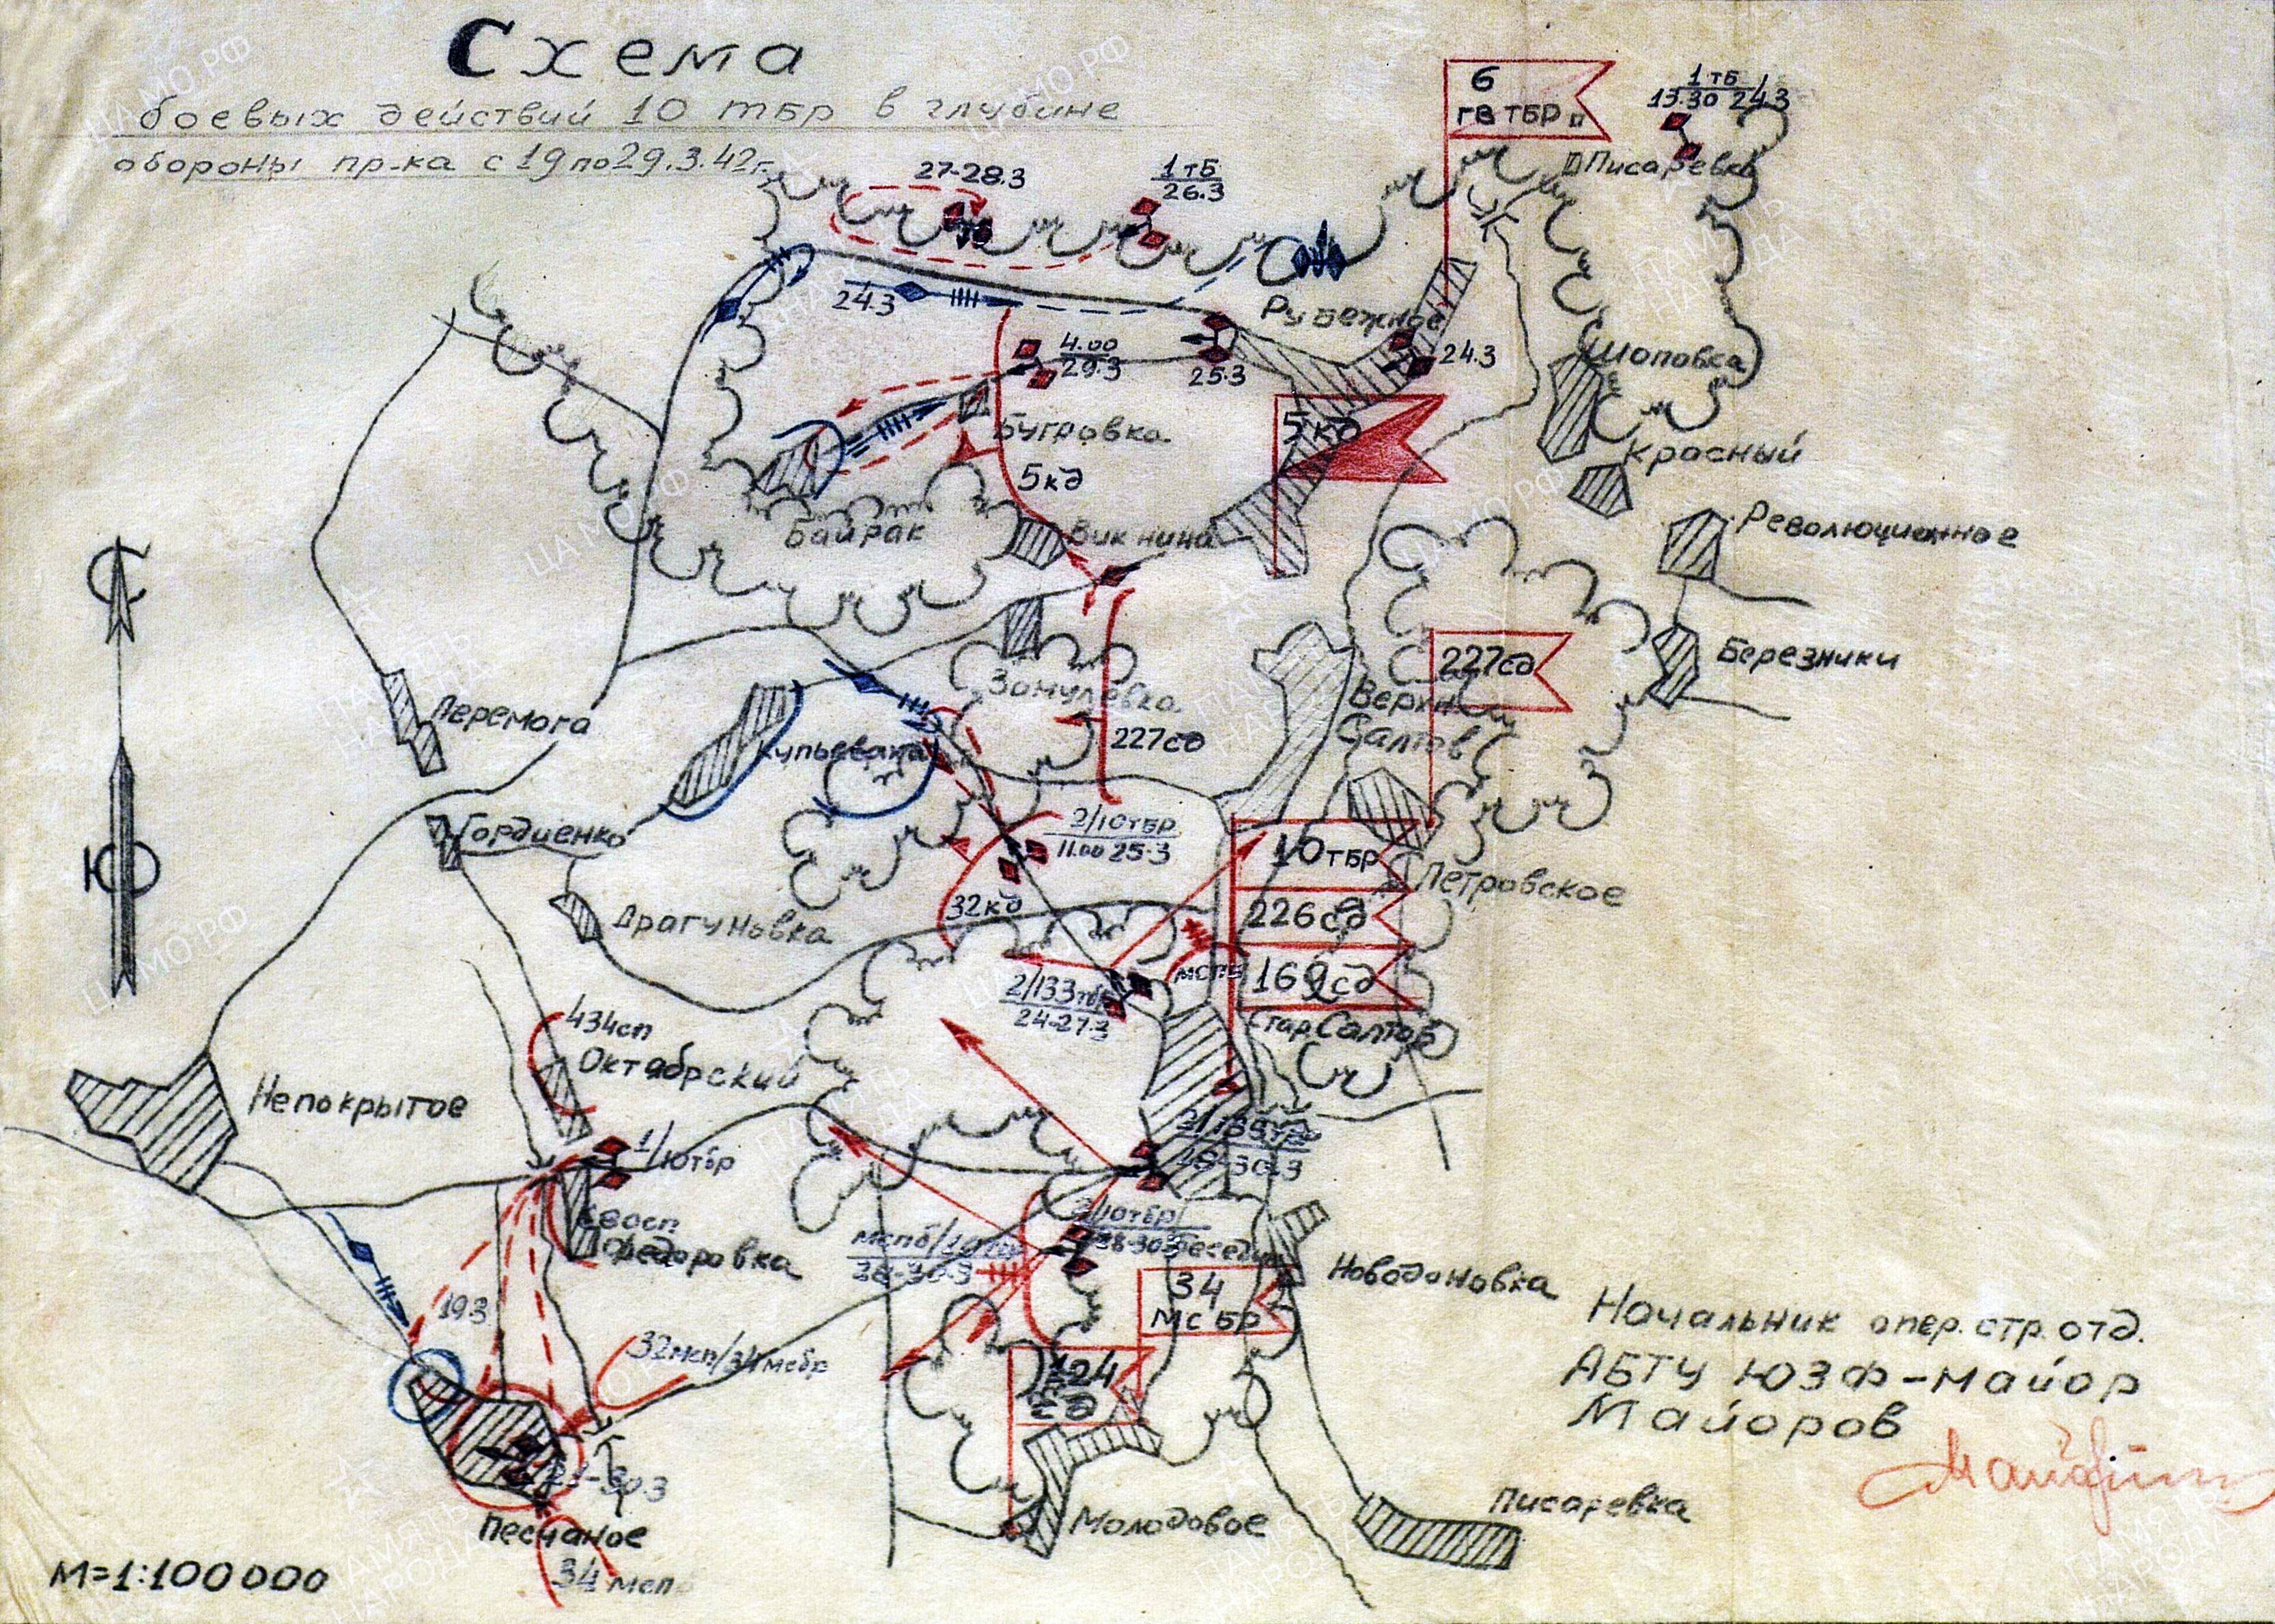 Схема
боевых действий 10 тбр в глубине
обороны пр-ка с 19 по 29.3.42г.
6
гв тбр
1 тб
13.30 24.3
Писаревка
27-28.3
1 тб
26.3
24.3
Рубежное
4.00
29.3
25.3
24.3
Шоповка
Бугровка
5 кд
Красный
5 кд
Революционное
Байрак
Викнина
С
227 сд
Березники
Замулевка
Верхн.
Салтов
Перемога
227 сд
Купьеваха
Гордиенко
2/10 тбр
11.00 25.3
10 тбр
Ю
Петровское
32 кд
226 сд
Драгуновка
169 сд
мспб
2/133 тбр
24-27.3
Стар. Салтов
434 сп
Октябрский
Непокрытое
1/10 тбр
2/10 тбр
28-30.3
мспб/10 тбр
28-30.3
Федоровка
Новодоновка
34
мс бр
19.3
Начальник опер. стр. отд.
АБТУ ЮЗФ-майор
Майоров
32 мсп/34 мсбр
124
сд
Песчаное
Молодовое
Писаревка
34 мсп
М=1:100 000
ЦА МО РФ
ПАМЯТЬ
НАРОДА